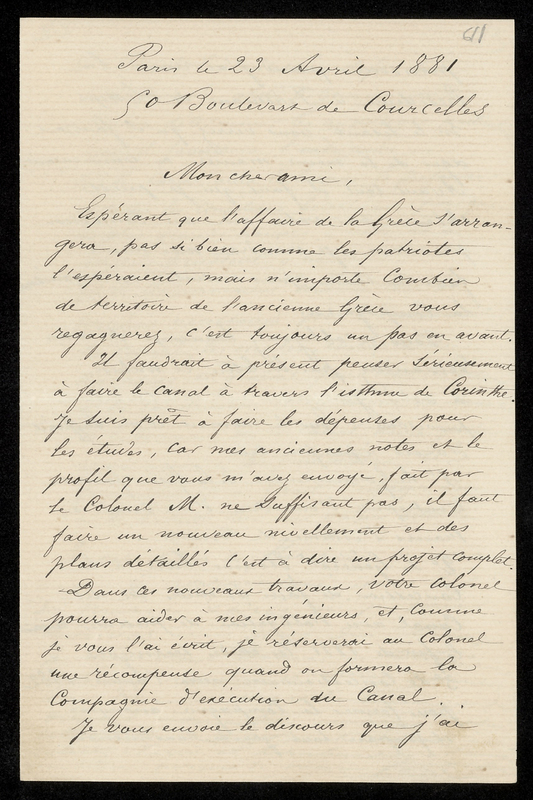 611
Paris le 23 Avril 1881
50 Boulevart de Courcelles
Mon cher ami,
Espérant que l'affaire de la Grèce s'arran-
gera, pas si bien comme les patriotes
l'espéraient, mais n'importe Combien
de territoire de l'ancienne Grèce vous
regagnerez, c'est toujours un pas en avant.
Il faudrait à présent penser sérieusement
à faire le canal à travers l'isthme de Corinthe.
Je suis prêt à faire les dépenses pour
les études, car mes anciennes notes et le
profil que vous m'avez envoyé, fait par
le Colonel M. ne suffisant pas, il faut
faire un nouveau nivellement et des
plans détaillés c'est à dire un projet complet.
- Dans ces nouveaux travaux, votre colonel
pourra aider à mes ingénieurs, et, comme
je vous l'ai écrit, je réserverai au Colonel
une récompense quand on formera la
Compagnie d'exécution du Canal.
Je vous envoie le discours que j'ai